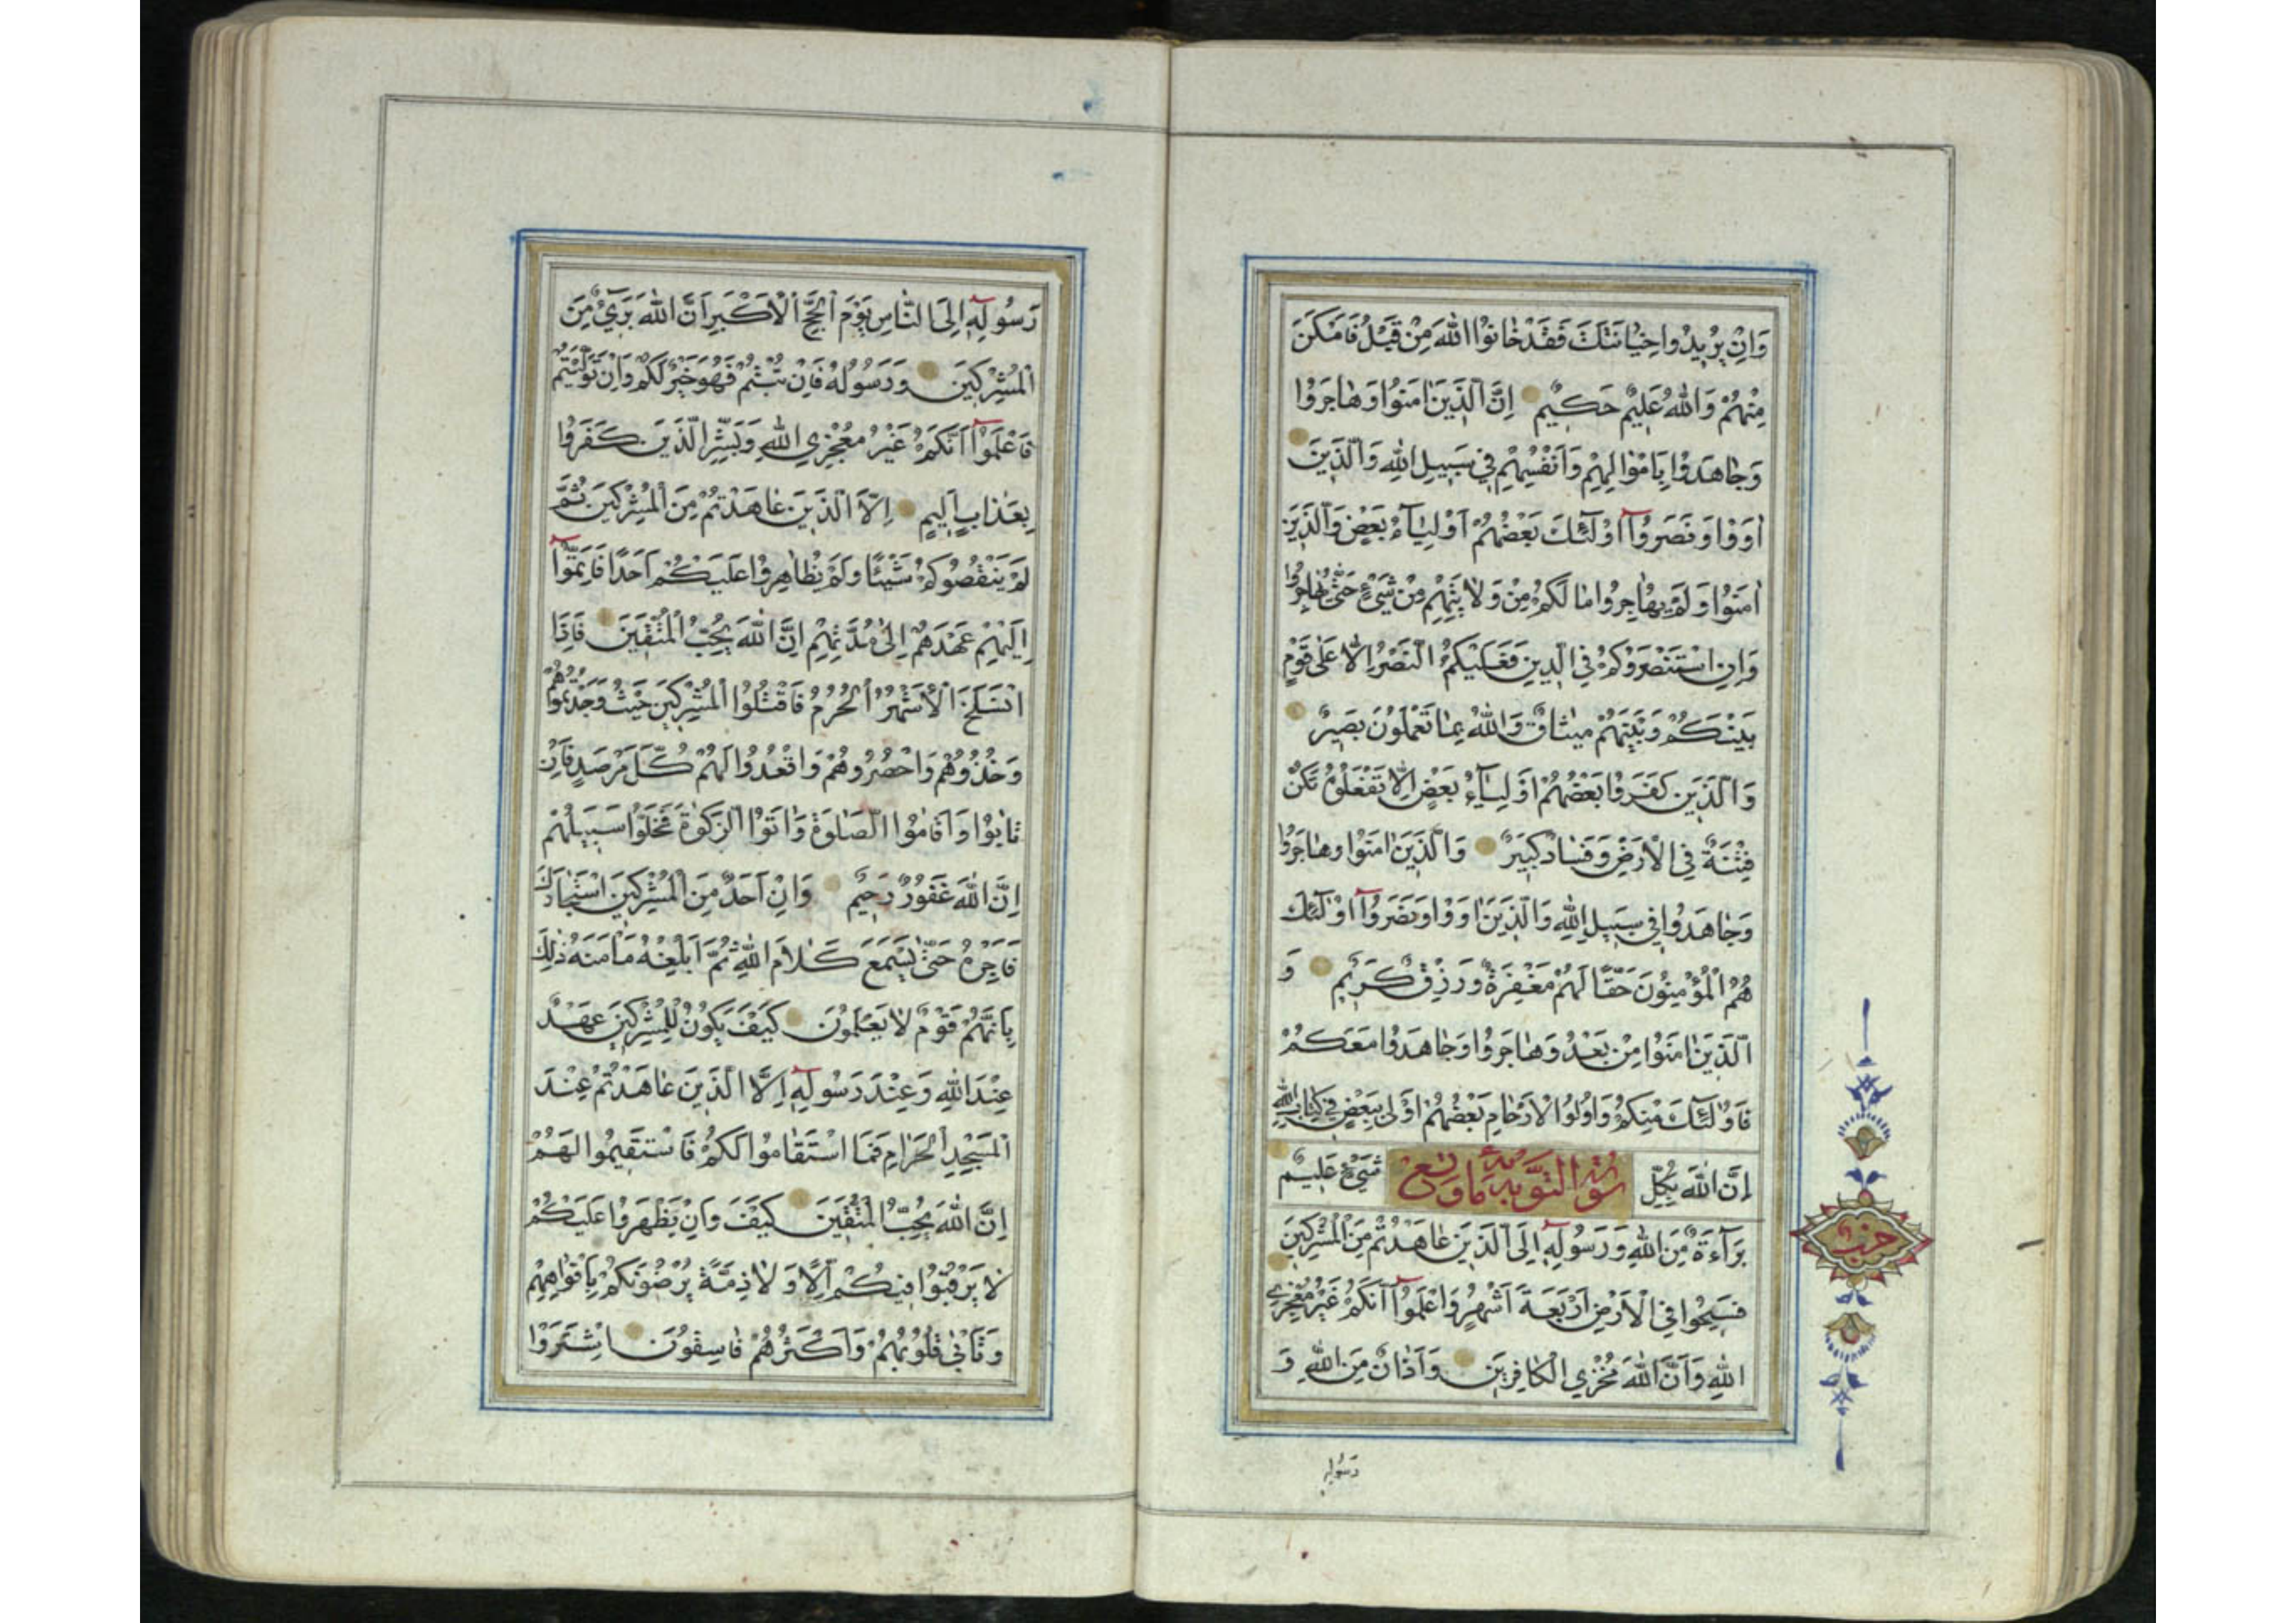 وَاِنْ يُرِيدُوا خِيَانَتَكَ فَقَدْ خَانُوا اللّٰهَ مِنْ قَبْلُ فَاَمْكَنَ
مِنْهُمْ وَاللّٰهُ عَلِيمٌ حَكِيمٌ اِنَّ الَّذِينَ اٰمَنُوا وَهَاجَرُوا
وَجَاهَدُوا بِاَمْوَالِهِمْ وَاَنْفُسِهِمْ فِي سَبِيلِ اللّٰهِ وَالَّذِينَ
اٰوَوْا وَنَصَرُوٓا اُولٰٓئِكَ بَعْضُهُمْ اَوْلِيَآءُ بَعْضٍ وَالَّذِينَ
اٰمَنُوا وَلَمْ يُهَاجِرُوا مَا لَكُمْ مِنْ وَلَايَتِهِمْ مِنْ شَيْءٍ حَتّٰى يُهَاجِرُوا
وَاِنِ اسْتَنْصَرُوكُمْ فِي الدِّينِ فَعَلَيْكُمُ النَّصْرُ اِلَّا عَلٰى قَوْمٍ
بَيْنَكُمْ وَبَيْنَهُمْ مِيثَاقٌ وَاللّٰهُ بِمَا تَعْمَلُونَ بَصِيرٌ
وَالَّذِينَ كَفَرُوا بَعْضُهُمْ اَوْلِيَآءُ بَعْضٍ اِلَّا تَفْعَلُوهُ تَكُنْ
فِتْنَةٌ فِي الْاَرْضِ وَفَسَادٌ كَبِيرٌ وَالَّذِينَ اٰمَنُوا وَهَاجَرُوا
وَجَاهَدُوا فِي سَبِيلِ اللّٰهِ وَالَّذِينَ اٰوَوْا وَنَصَرُوٓا اُولٰٓئِكَ
هُمُ الْمُؤْمِنُونَ حَقًّا لَهُمْ مَغْفِرَةٌ وَرِزْقٌ كَرِيمٌ وَ
الَّذِينَ اٰمَنُوا مِنْ بَعْدُ وَهَاجَرُوا وَجَاهَدُوا مَعَكُمْ
فَاُولٰٓئِكَ مِنْكُمْ وَاُولُوا الْاَرْحَامِ بَعْضُهُمْ اَوْلٰى بِبَعْضٍ فِي كِتَابِ اللّٰهِ
اِنَّ اللّٰهَ بِكُلِّ سورة التوبة شَيْءٍ عَلِيمٌ
بَرَآءَةٌ مِنَ اللّٰهِ وَرَسُولِهٓ اِلَى الَّذِينَ عَاهَدْتُمْ مِنَ الْمُشْرِكِينَ
فَسِيحُوا فِي الْاَرْضِ اَرْبَعَةَ اَشْهُرٍ وَاعْلَمُوٓا اَنَّكُمْ غَيْرُ مُعْجِزِي
اللّٰهِ وَاَنَّ اللّٰهَ مُخْزِي الْكَافِرِينَ وَاَذَانٌ مِنَ اللّٰهِ وَ
رَسُولِهِ
حزب
رَسُولِهٓ اِلَى النَّاسِ يَوْمَ الْحَجِّ الْاَكْبَرِ اَنَّ اللّٰهَ بَرِيءٌ مِنَ
الْمُشْرِكِينَ وَرَسُولُهُ فَاِنْ تُبْتُمْ فَهُوَ خَيْرٌ لَكُمْ وَاِنْ تَوَلَّيْتُمْ
فَاعْلَمُوٓا اَنَّكُمْ غَيْرُ مُعْجِزِي اللّٰهِ وَبَشِّرِ الَّذِينَ كَفَرُوا
بِعَذَابٍ اَلِيمٍ اِلَّا الَّذِينَ عَاهَدْتُمْ مِنَ الْمُشْرِكِينَ ثُمَّ
لَمْ يَنْقُصُوكُمْ شَيْئًا وَلَمْ يُظَاهِرُوا عَلَيْكُمْ اَحَدًا فَاَتِمُّوٓا
اِلَيْهِمْ عَهْدَهُمْ اِلٰى مُدَّتِهِمْ اِنَّ اللّٰهَ يُحِبُّ الْمُتَّقِينَ فَاِذَا
انْسَلَخَ الْاَشْهُرُ الْحُرُمُ فَاقْتُلُوا الْمُشْرِكِينَ حَيْثُ وَجَدْتُمُوهُمْ
وَخُذُوهُمْ وَاحْصُرُوهُمْ وَاقْعُدُوا لَهُمْ كُلَّ مَرْصَدٍ فَاِنْ
تَابُوا وَاَقَامُوا الصَّلٰوةَ وَاٰتَوُا الزَّكٰوةَ فَخَلُّوا سَبِيلَهُمْ
اِنَّ اللّٰهَ غَفُورٌ رَحِيمٌ وَاِنْ اَحَدٌ مِنَ الْمُشْرِكِينَ اسْتَجَارَكَ
فَاَجِرْهُ حَتّٰى يَسْمَعَ كَلَامَ اللّٰهِ ثُمَّ اَبْلِغْهُ مَاْمَنَهُ ذٰلِكَ
بِاَنَّهُمْ قَوْمٌ لَا يَعْلَمُونَ كَيْفَ يَكُونُ لِلْمُشْرِكِينَ عَهْدٌ
عِنْدَ اللّٰهِ وَعِنْدَ رَسُولِهٓ اِلَّا الَّذِينَ عَاهَدْتُمْ عِنْدَ
الْمَسْجِدِ الْحَرَامِ فَمَا اسْتَقَامُوا لَكُمْ فَاسْتَقِيمُوا لَهُمْ
اِنَّ اللّٰهَ يُحِبُّ الْمُتَّقِينَ كَيْفَ وَاِنْ يَظْهَرُوا عَلَيْكُمْ
لَا يَرْقُبُوا فِيكُمْ اِلًّا وَلَا ذِمَّةً يُرْضُونَكُمْ بِاَفْوَاهِهِمْ
وَتَاْبٰى قُلُوبُهُمْ وَاَكْثَرُهُمْ فَاسِقُونَ اِشْتَرَوْا